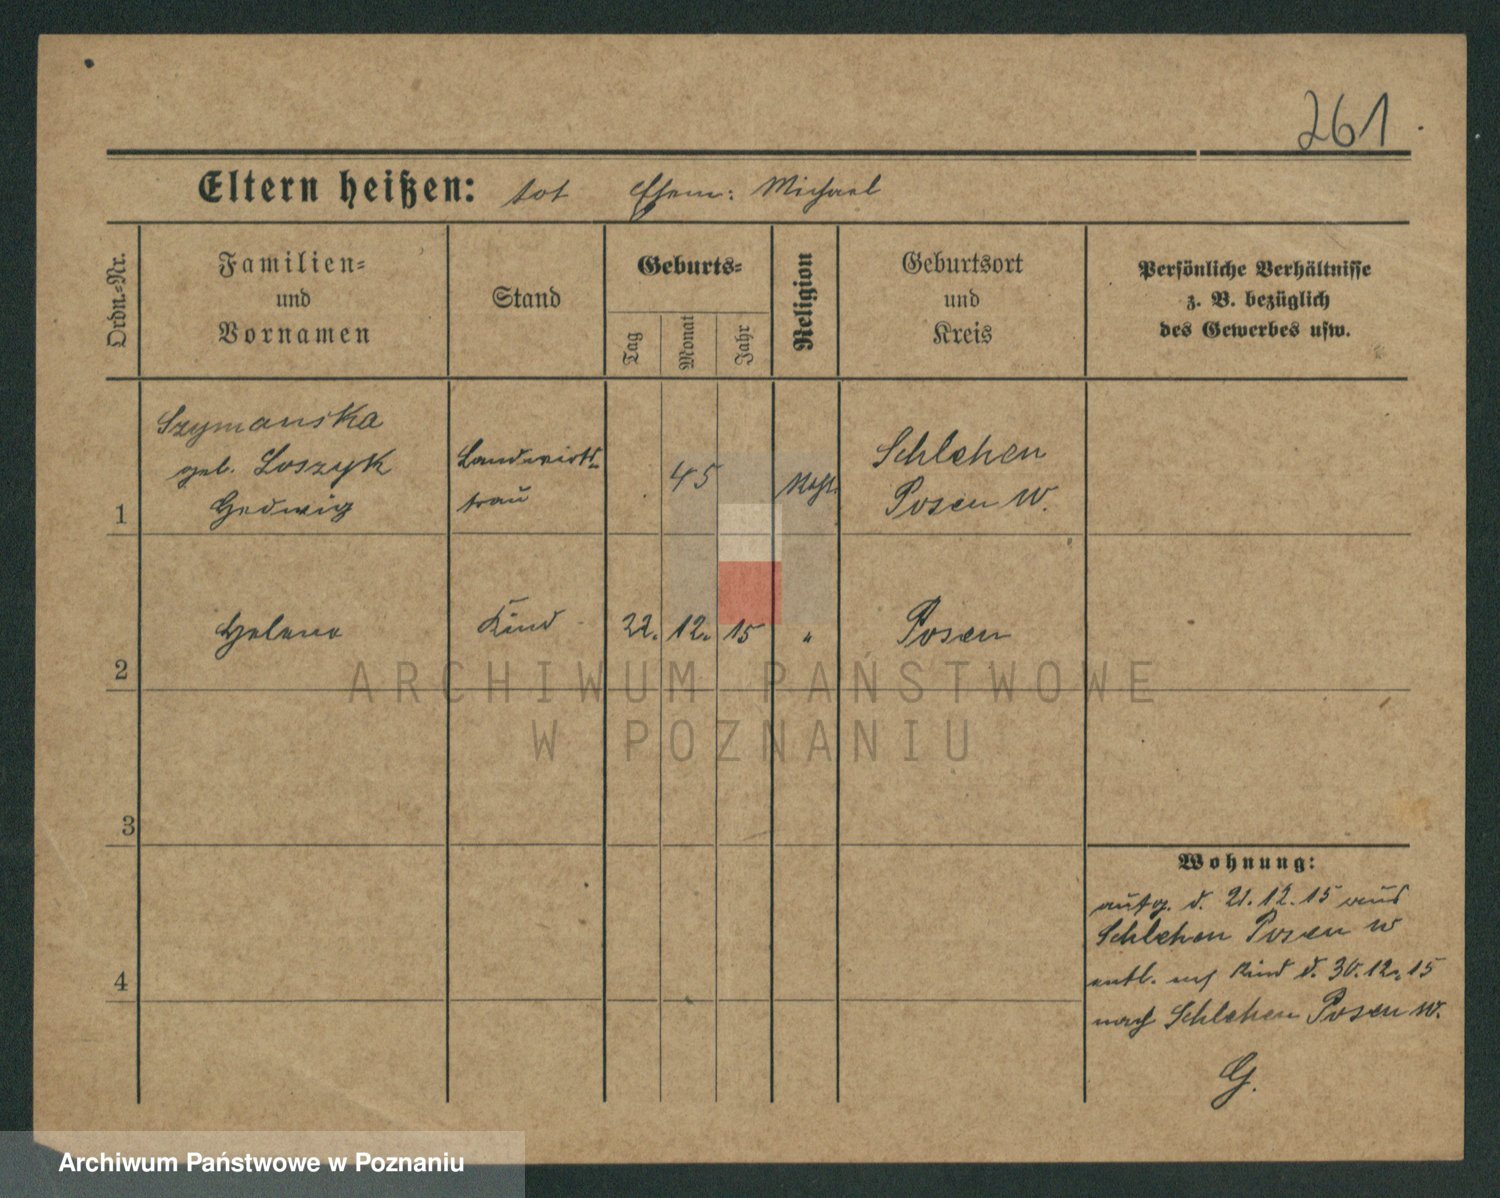 261.
Eltern heißen: tot Ehem: Michael
Ordn.-Nr.
Familien-
und
Vornamen
Stand
Geburts-
Tag
Monat
Jahr
Religion
Geburtsort
und
Kreis
Persönliche Verhältnisse
z. B. bezüglich
des Gewerbes usw.
1
Szymanska
geb. Loszyk
Hedwig
Landwirts-
frau
45
Schlehen
Posen W.
2
Helene
Kind
22. 12. 15
"
Posen
3
4
Wohnung:
aufg. d. 21. 12. 15 aus
Schlehen Posen W
entl. mit Kind d. 30. 12. 15
nach Schlehen Posen W.
G.
ARCHIWUM PAŃSTWOWE
W POZNANIU
Archiwum Państwowe w Poznaniu